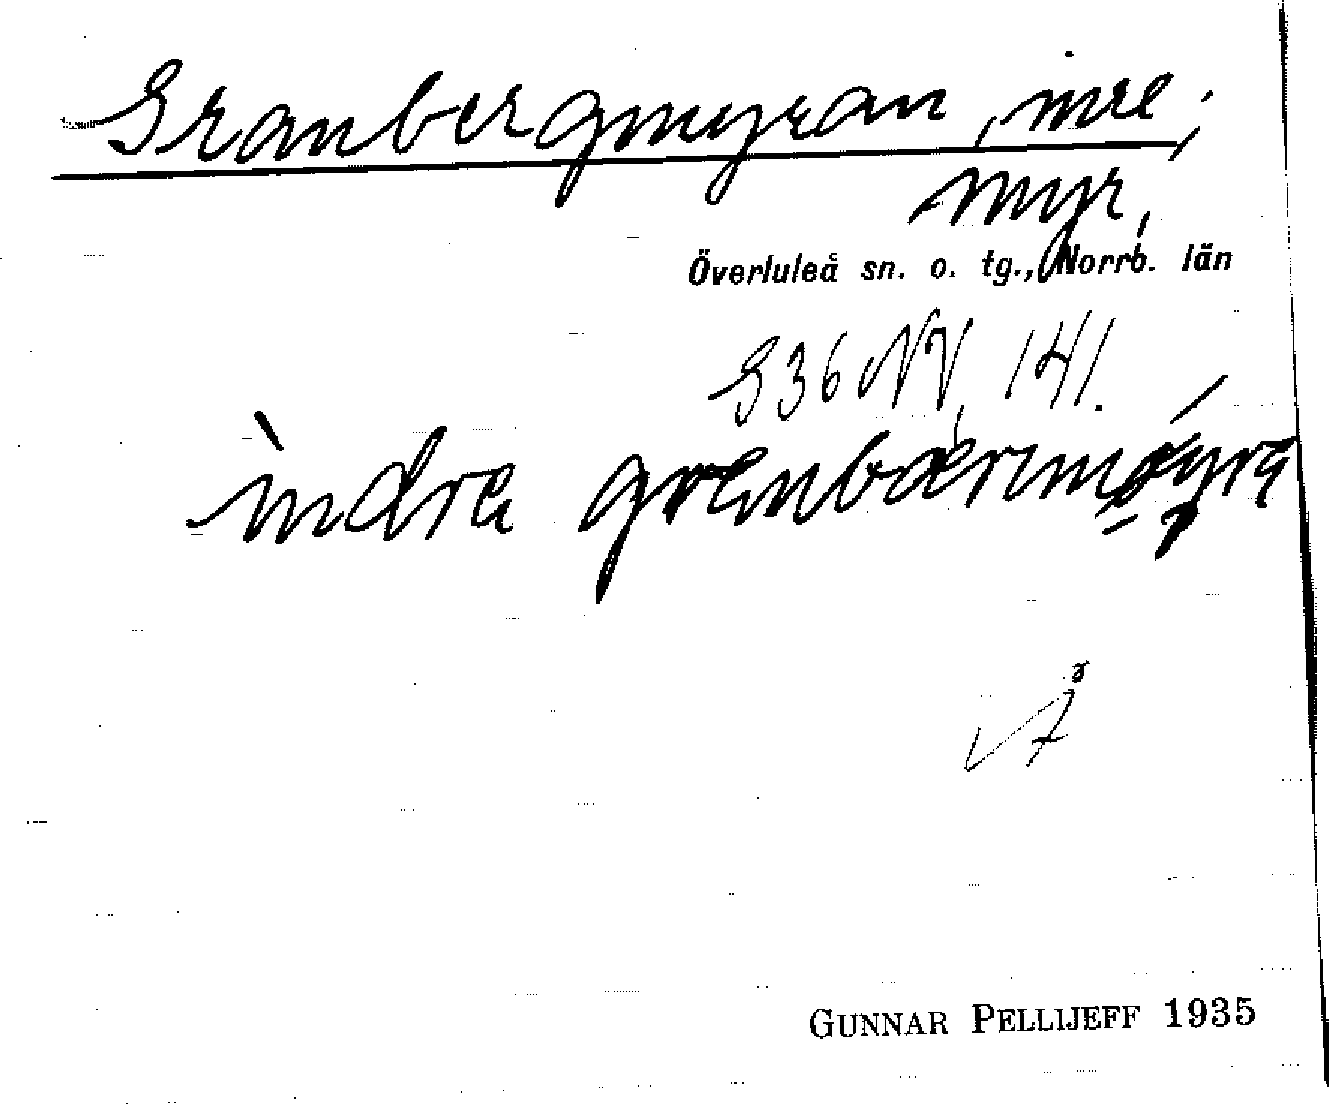 Granbergmyran, inre,
myr,
Överluleå sn. o. tg., Norrb. län
S36 NV, 141.
ìndra grænbærmøyra
GUNNAR PELLIJEFF 1935